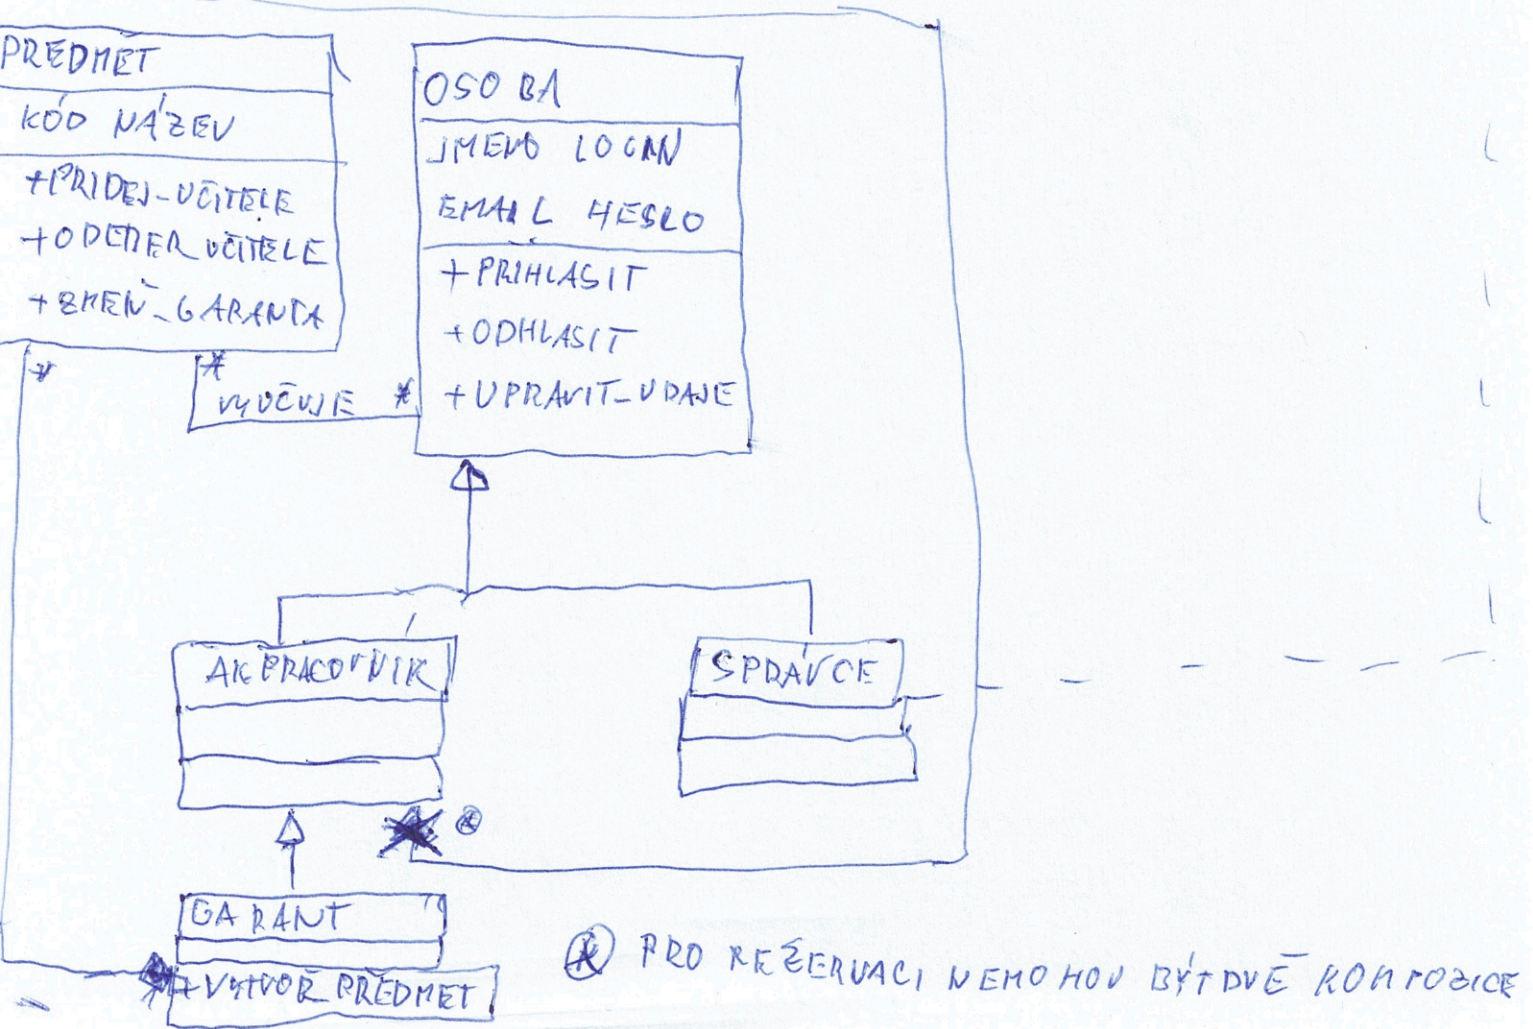 PREDMET
KÓD NÁZEV
+PRIDEJ_UČITELE
+ODEBER UČITELE
+ZMEŇ_GARANTA
*
*
VYUČUJE *
OSOBA
JMENO LOGIN
EMAIL HESLO
+PŘIHLASIT
+ODHLASIT
+UPRAVIT_UDAJE
AK PRACOVNIK
SPRÁVCE
*
GARANT
+VYTVOŘ_PŘEDMET
* PRO REZERVACI NEMOHOU BÝT DVĚ KOMPOZICE